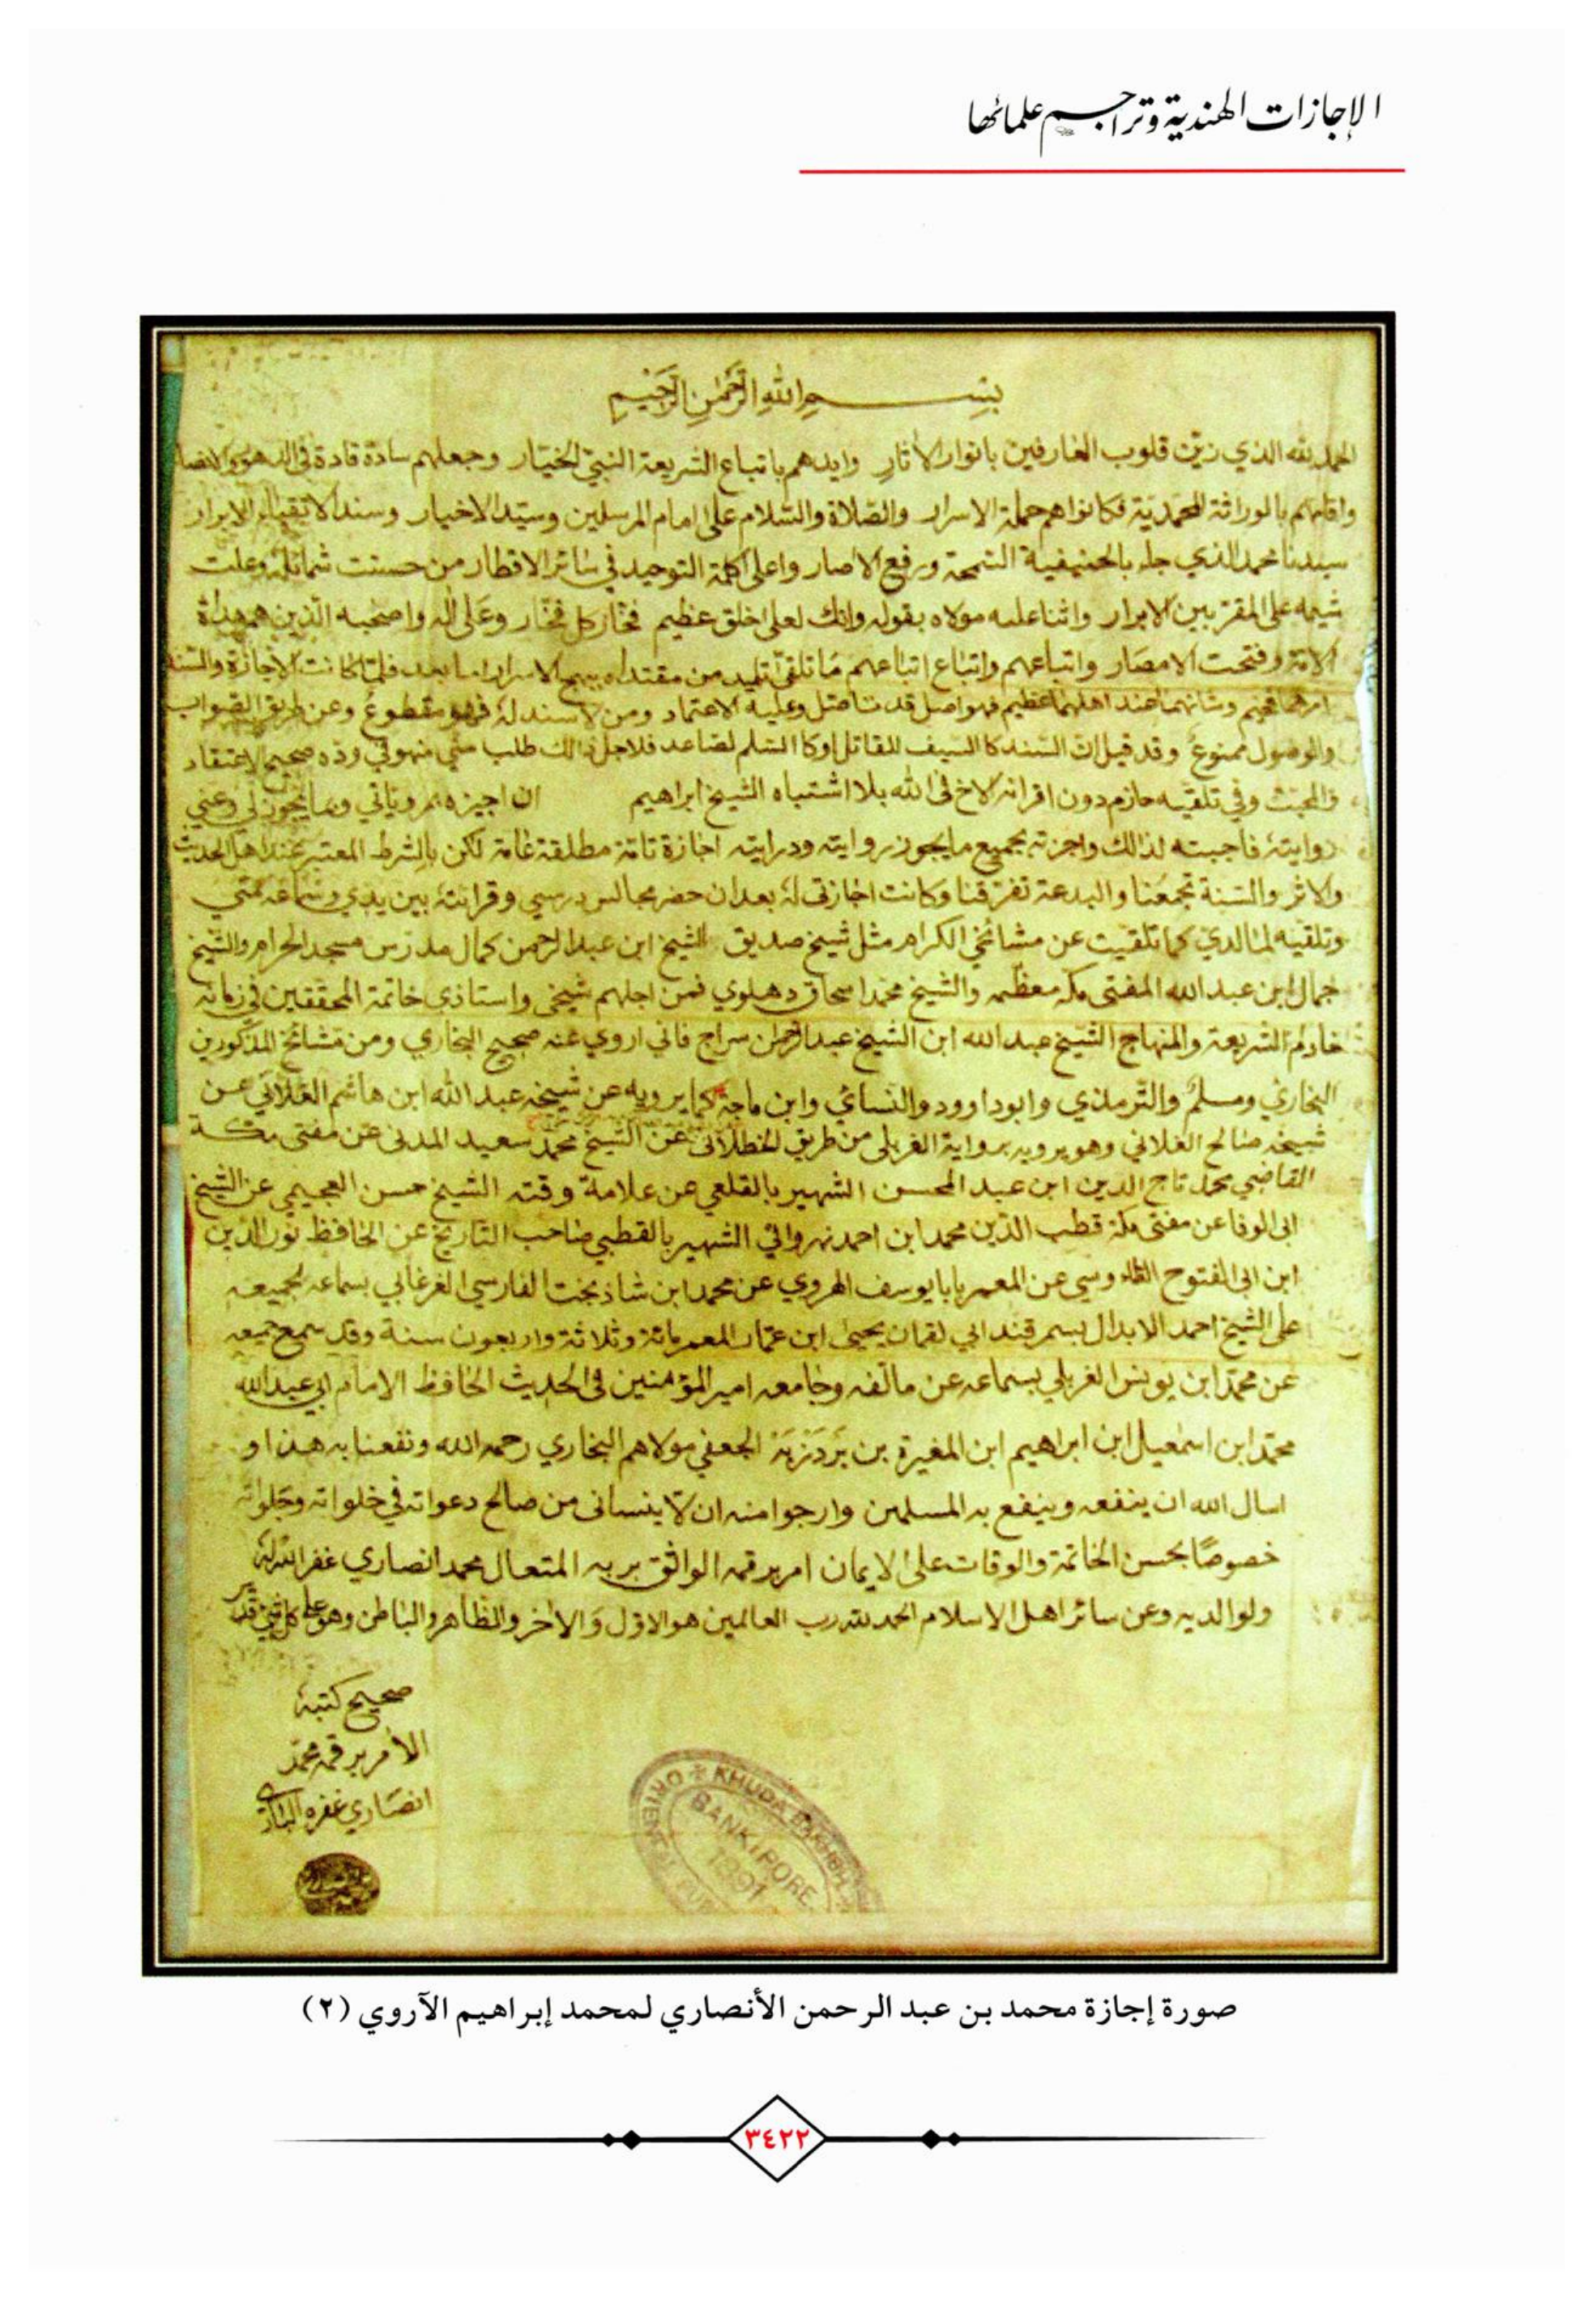 الإجازات الهندية وتراجم علمائها
بسم الله الرحمن الرحيم
الحمد لله الذي زين قلوب العارفين بانوار الاثار وايدهم باتباع الشريعة النبي المختيار وجعلهم سادة قادة في
واقامهم بالوراثة المحمدية فكانوا هم حملة الاسرار والصلاة والسلام على امام المرسلين وسيد الاخيار وسند الاتقياء والابرار
سيدنا محمد الذي جاء بالحنيفية السمحة ورفع الاصار واعلى كلمة التوحيد في سائر الاقطار من حسنت شمائله وعلت
شيمه على المقربين الابرار واثنا عليه مولاه بقوله وانك لعلى خلق عظيم فخار كل فخار وعلى اله واصحبه الذين هم هداة
الامة وفتحت الامصار واتباعهم واتباع اتباعهم ما تلقى تليد من مقتداه بيهج الاسرار اما بعد فلما كانت الاجازة والسند
امرهما فخيم وشانهما عند اهلهما عظيم فهو اصل قد تاصل وعليه الاعتماد ومن لا سند له فهو مقطوع وعن طريق الصواب
والوصول ممنوع وقد قيل ان السند كا السيف للمقاتل اوكا السلم لصاعد فلاجل ذالك طلب مني منهو في وده صحيح الاعتقاد
والمحبت وفي تلقيه حازم دون اقرانه الاخ في الله بلا اشتباه الشيخ ابراهيم ان اجيزه بمروياتي وما يجوز لي وعني
روايته فاجبته لذالك واجزته بجميع ما يجوز روايته ودرايته اجازة تامة مطلقة عامة لكن بالشرط المعتبر عند اهل الحديث
والاثر والسنة تجمعنا والبدعة تفرقنا وكانت اجازتي له بعد ان حضر مجالس درسي وقرائته بين يدي وسماعه مني
وتلقيه لما لدي كما تلقيت عن مشائخي الكرام مثل شيخ صديق الشيخ ابن عبد الرحمن كمال مدرس مسجد الحرام والشيخ
جمال ابن عبد الله المفتى مكه معظمه والشيخ محمد اسحاق دهلوي فمن اجلهم شيخي واستاذي خاتمة المحققين في زمانه
خادم الشريعة والمنهاج الشيخ عبد الله ابن الشيخ عبد الرحمن سراج فاني اروي عنه صحيح البخاري ومن مشائخ المذكورين
البخاري ومسلم والترمذي وابوداوود والنسائي وابن ماجة كما يرويه عن شيخه عبد الله ابن هاشم الفلاني عن
شيخه صالح الفلاني وهو يرويه برواية الفربلى من طريق الخطلانى عن الشيخ محمد سعيد المدني عن مفتى مكة
القاضي محمد تاج الدين ابن عبد المحسن الشهير بالقلعي عن علامة وقته الشيخ حسن العجيمي عن الشيخ
ابى الوفا عن مفتى مكة قطب الدين محمد ابن احمد نهرواني الشهير بالقطبي صاحب التاريخ عن الحافظ نور الدين
ابن ابى الفتوح الطاءوسي عن المعمر بابا يوسف الهروي عن محمد ابن شاذ بخت الفارسي الفرغاني بسماعه لجميعه
على الشيخ احمد الابدال بسمرقند ابي لقمان يحيى ابن عمار المعمر مائة وثلاثة واربعون سنة وقد سمع جميعه
عن محمد ابن يونس الفربلي بسماعه عن مالفه وجامعه امير المؤمنين في الحديث الحافظ الامام ابي عبد الله
محمد ابن اسمعيل ابن ابراهيم ابن المغيرة بن بردزبة الجعفي مولاهم البخاري رحمه الله ونفعنا به هذا و
اسال الله ان ينفعه وينفع به المسلمين وارجوا منه ان لا ينساني من صالح دعواته في خلواته وجلواته
خصوصا بحسن الخاتمة والوفات على الايمان امر برقمه الواثق بربه المتعال محمد انصاري غفر الله له
ولوالديه وعن سائر اهل الاسلام الحمد لله رب العالمين هو الاول والاخر والظاهر والباطن وهو على كل شئ قدير
صحيح كتبه
الامر برقمه محمد
انصاري غفره الباري
KHUDA BAKHSH ORIENTAL PUB
BANKIPORE
1891
صورة إجازة محمد بن عبد الرحمن الأنصاري لمحمد إبراهيم الآروي (٢)
٣٤٢٢